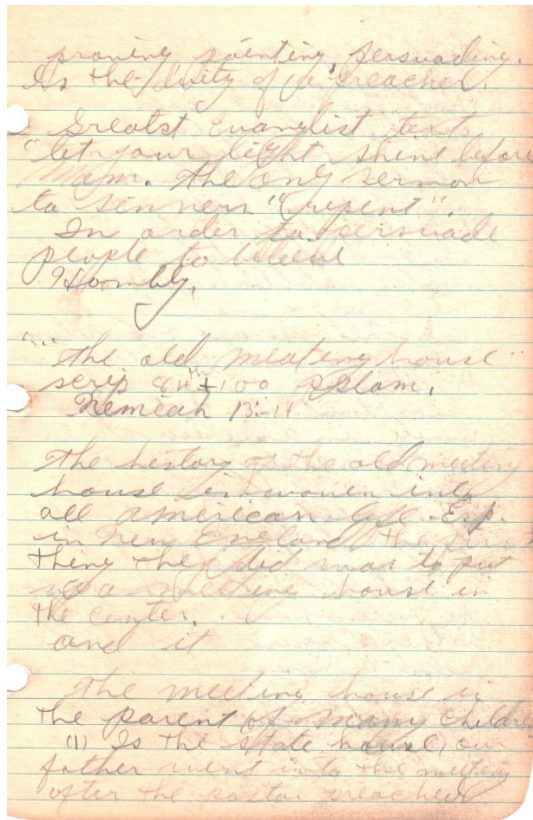 proving painting, persuading.
Is the duty of a preacher.
Greatst Evanglist text,
"let your light shine before
Mem. the ony sermon
to sinners "repent".
In order to persuade
people to
"the old meating house"
scrip 84th + 100 Pslam.
Nemiah 13:-11
The history of the old meeting
house is woven into
all american life. Esp.
in New England the first
thing they did was to put
up a meeting house in
the center.
and it
The meeting house is
the parent of many childre
(1) Is the state house, our
father went into the meeting
after the pastor preached